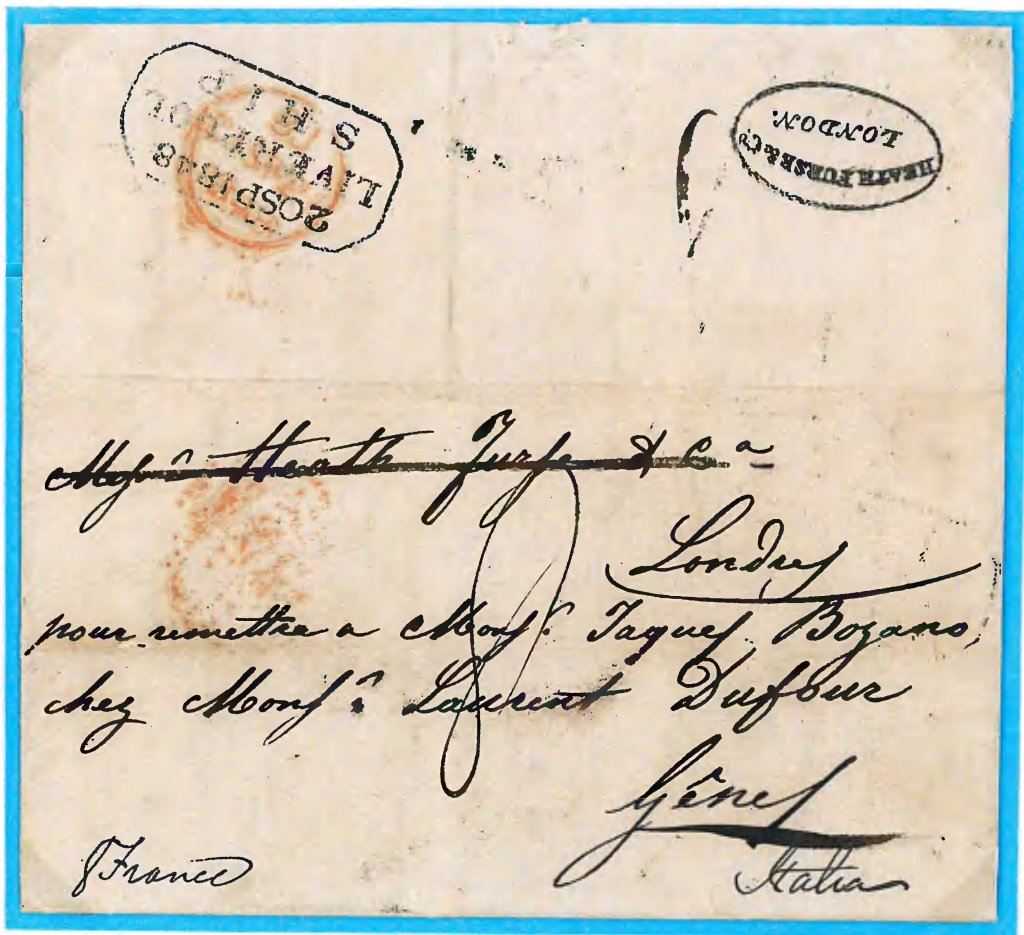 SHIP
LIVERPOOL
20SP1848
HEATH FURSE & Co
LONDON.
Mess.rs Heath Furse & C.a
Londres
pour remettre a Mons.r Jaques Bozano,
chez Mons.r Laurent Dufour
Gênes
Italia
France